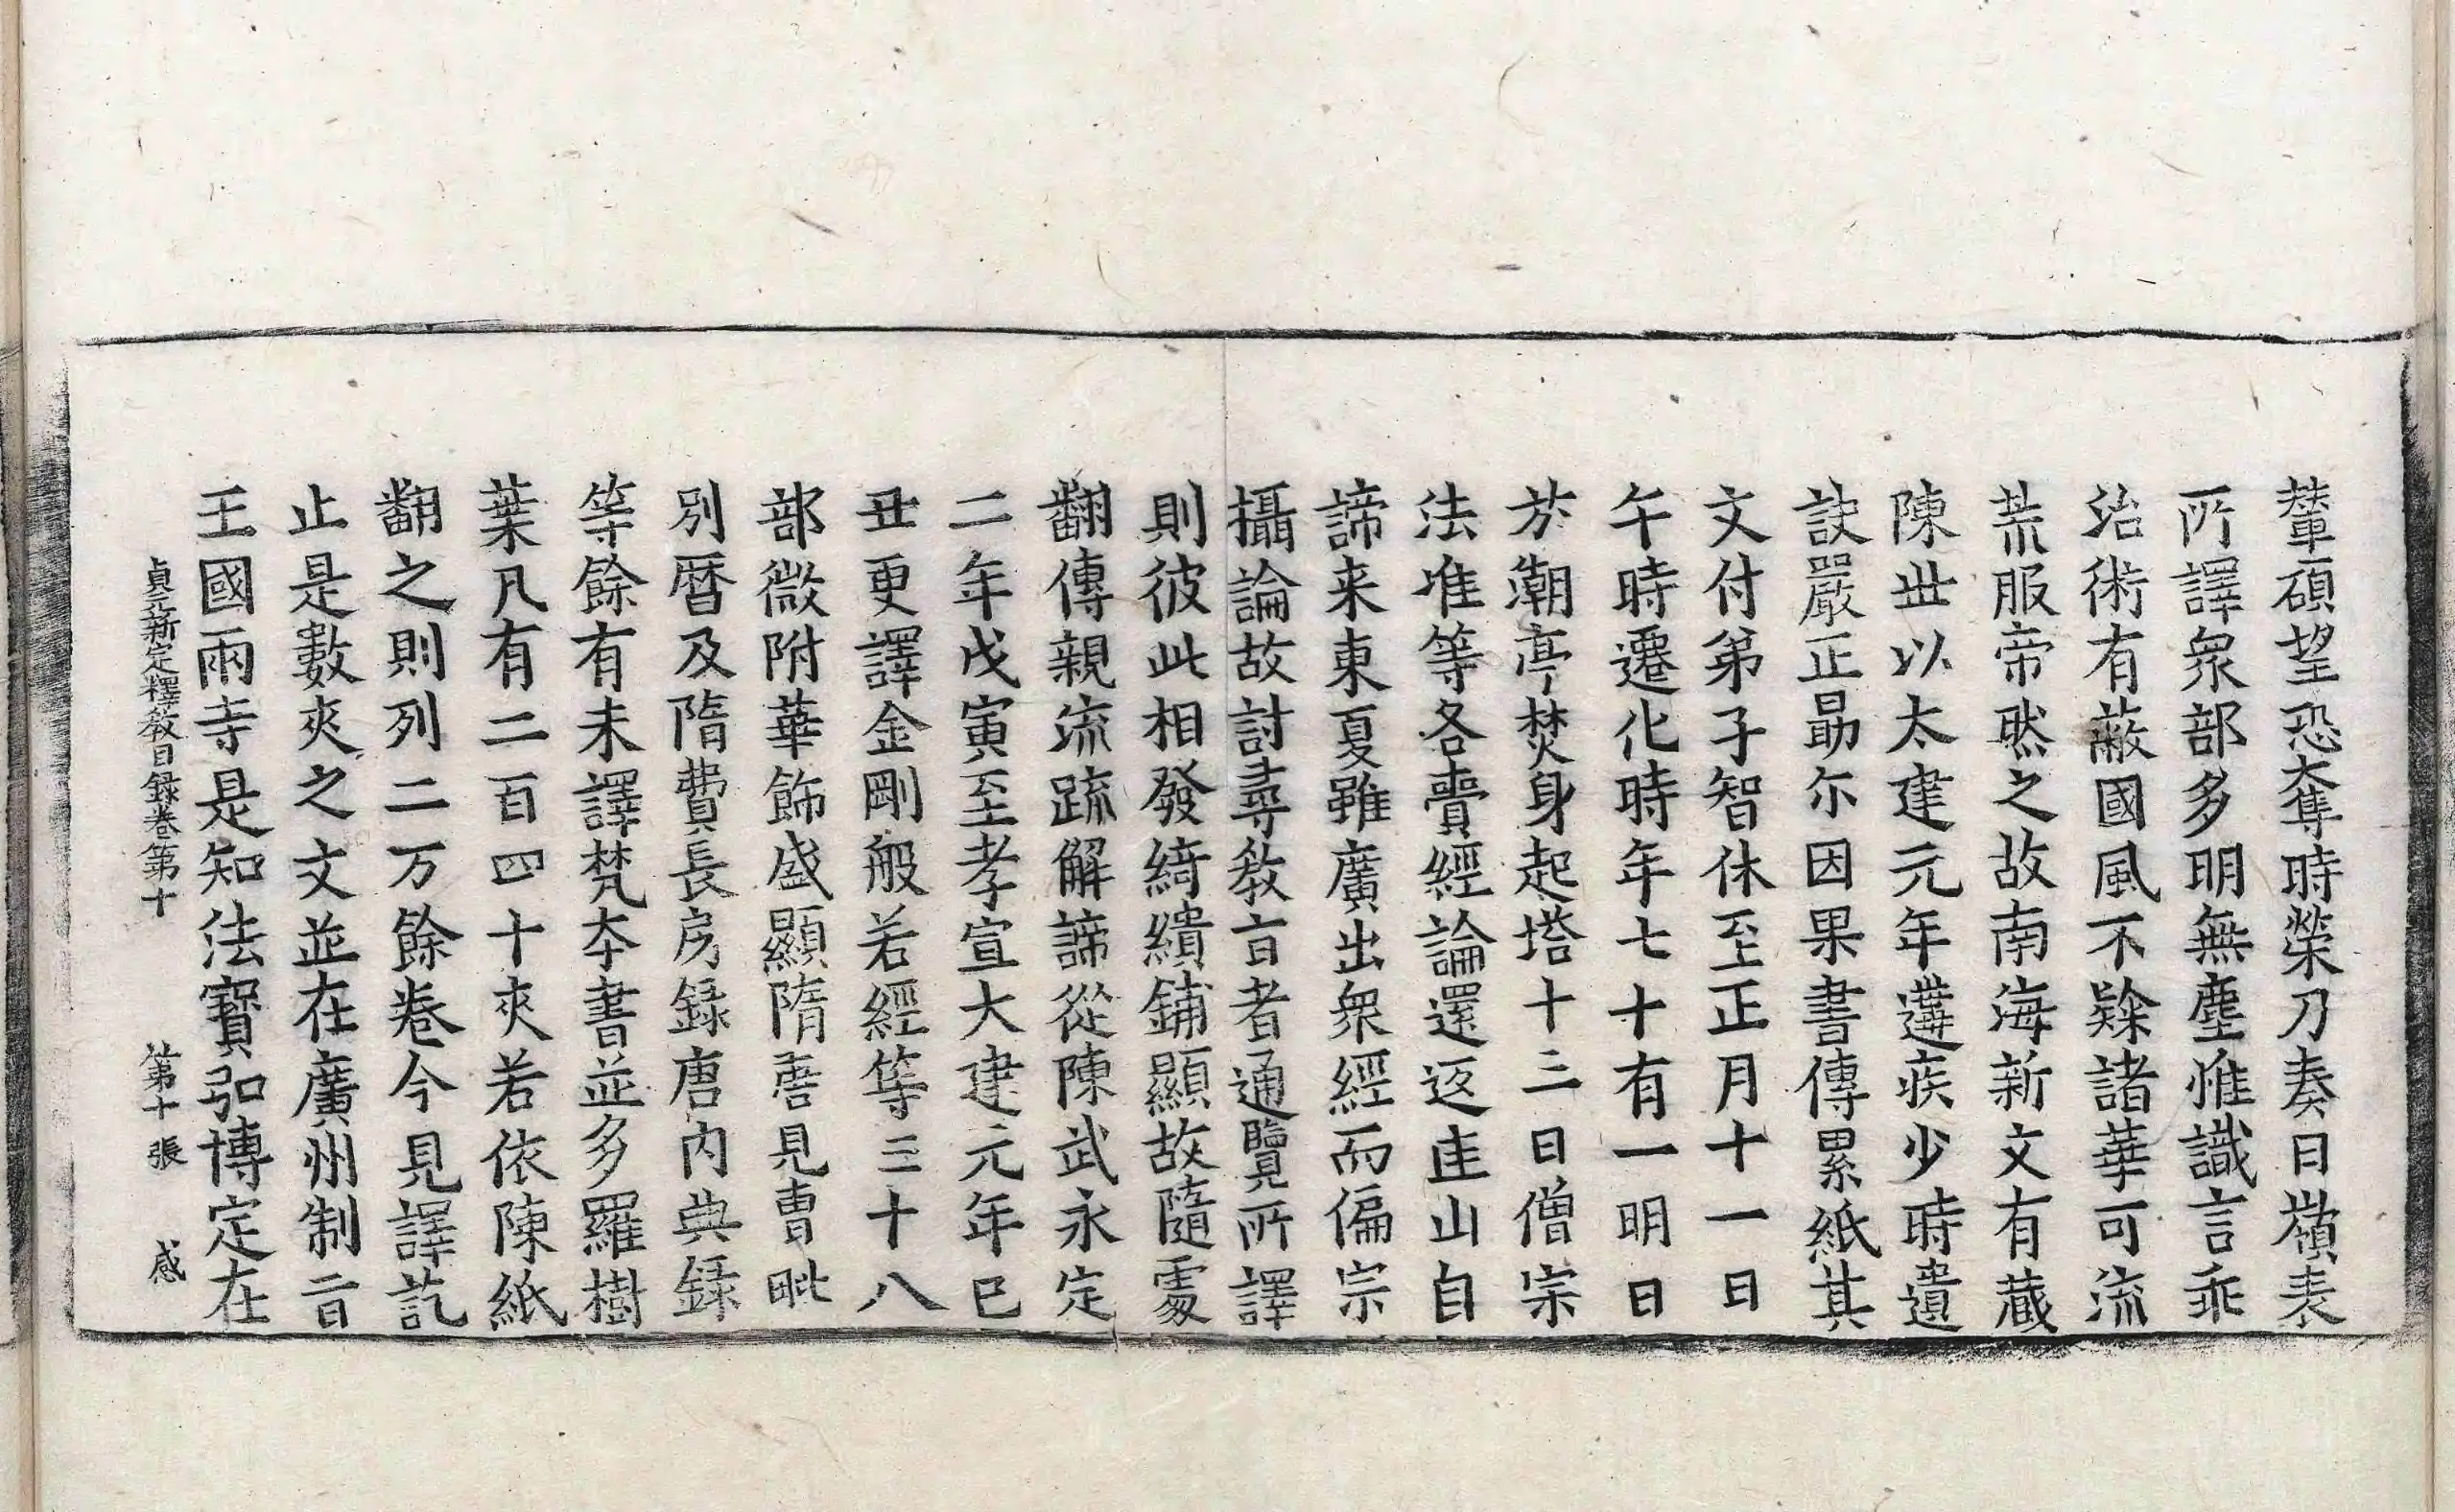 輦碩望恐奪時榮乃奏曰嶺表
所譯衆部多明無塵惟識言乖
治術有蔽國風不隸諸華可流
荒服帝然之故南海新文有蔵
陳世以太建元年遘疾少時遺
訣嚴正勗尓因果書傳累紙其
文付弟子智休至正月十一日
午時遷化時年七十有一明日
於潮亭焚身起塔十三日僧宗
法准等各賷經論還返匡山自
諦来東夏雖廣出衆經而偏宗
攝論故討尋教旨者通覽所譯
則彼此相發綺繢鋪顯故隨處
翻傳親流疏解諦從陳武永定
二年戊寅至孝宣大建元年己
丑更譯金剛般若經等三十八
部微附華飾盛顯隋唐見曹毗
別曆及隋費長房録唐内典録
等餘有未譯梵夲書並多羅樹
葉凡有二百四十夾若依陳紙
翻之則列二万餘卷今見譯訖
止是數夾之文並在廣州制旨
王國兩寺是知法寶弘博定在
貞元新定釋教目録卷第十 第十張 感